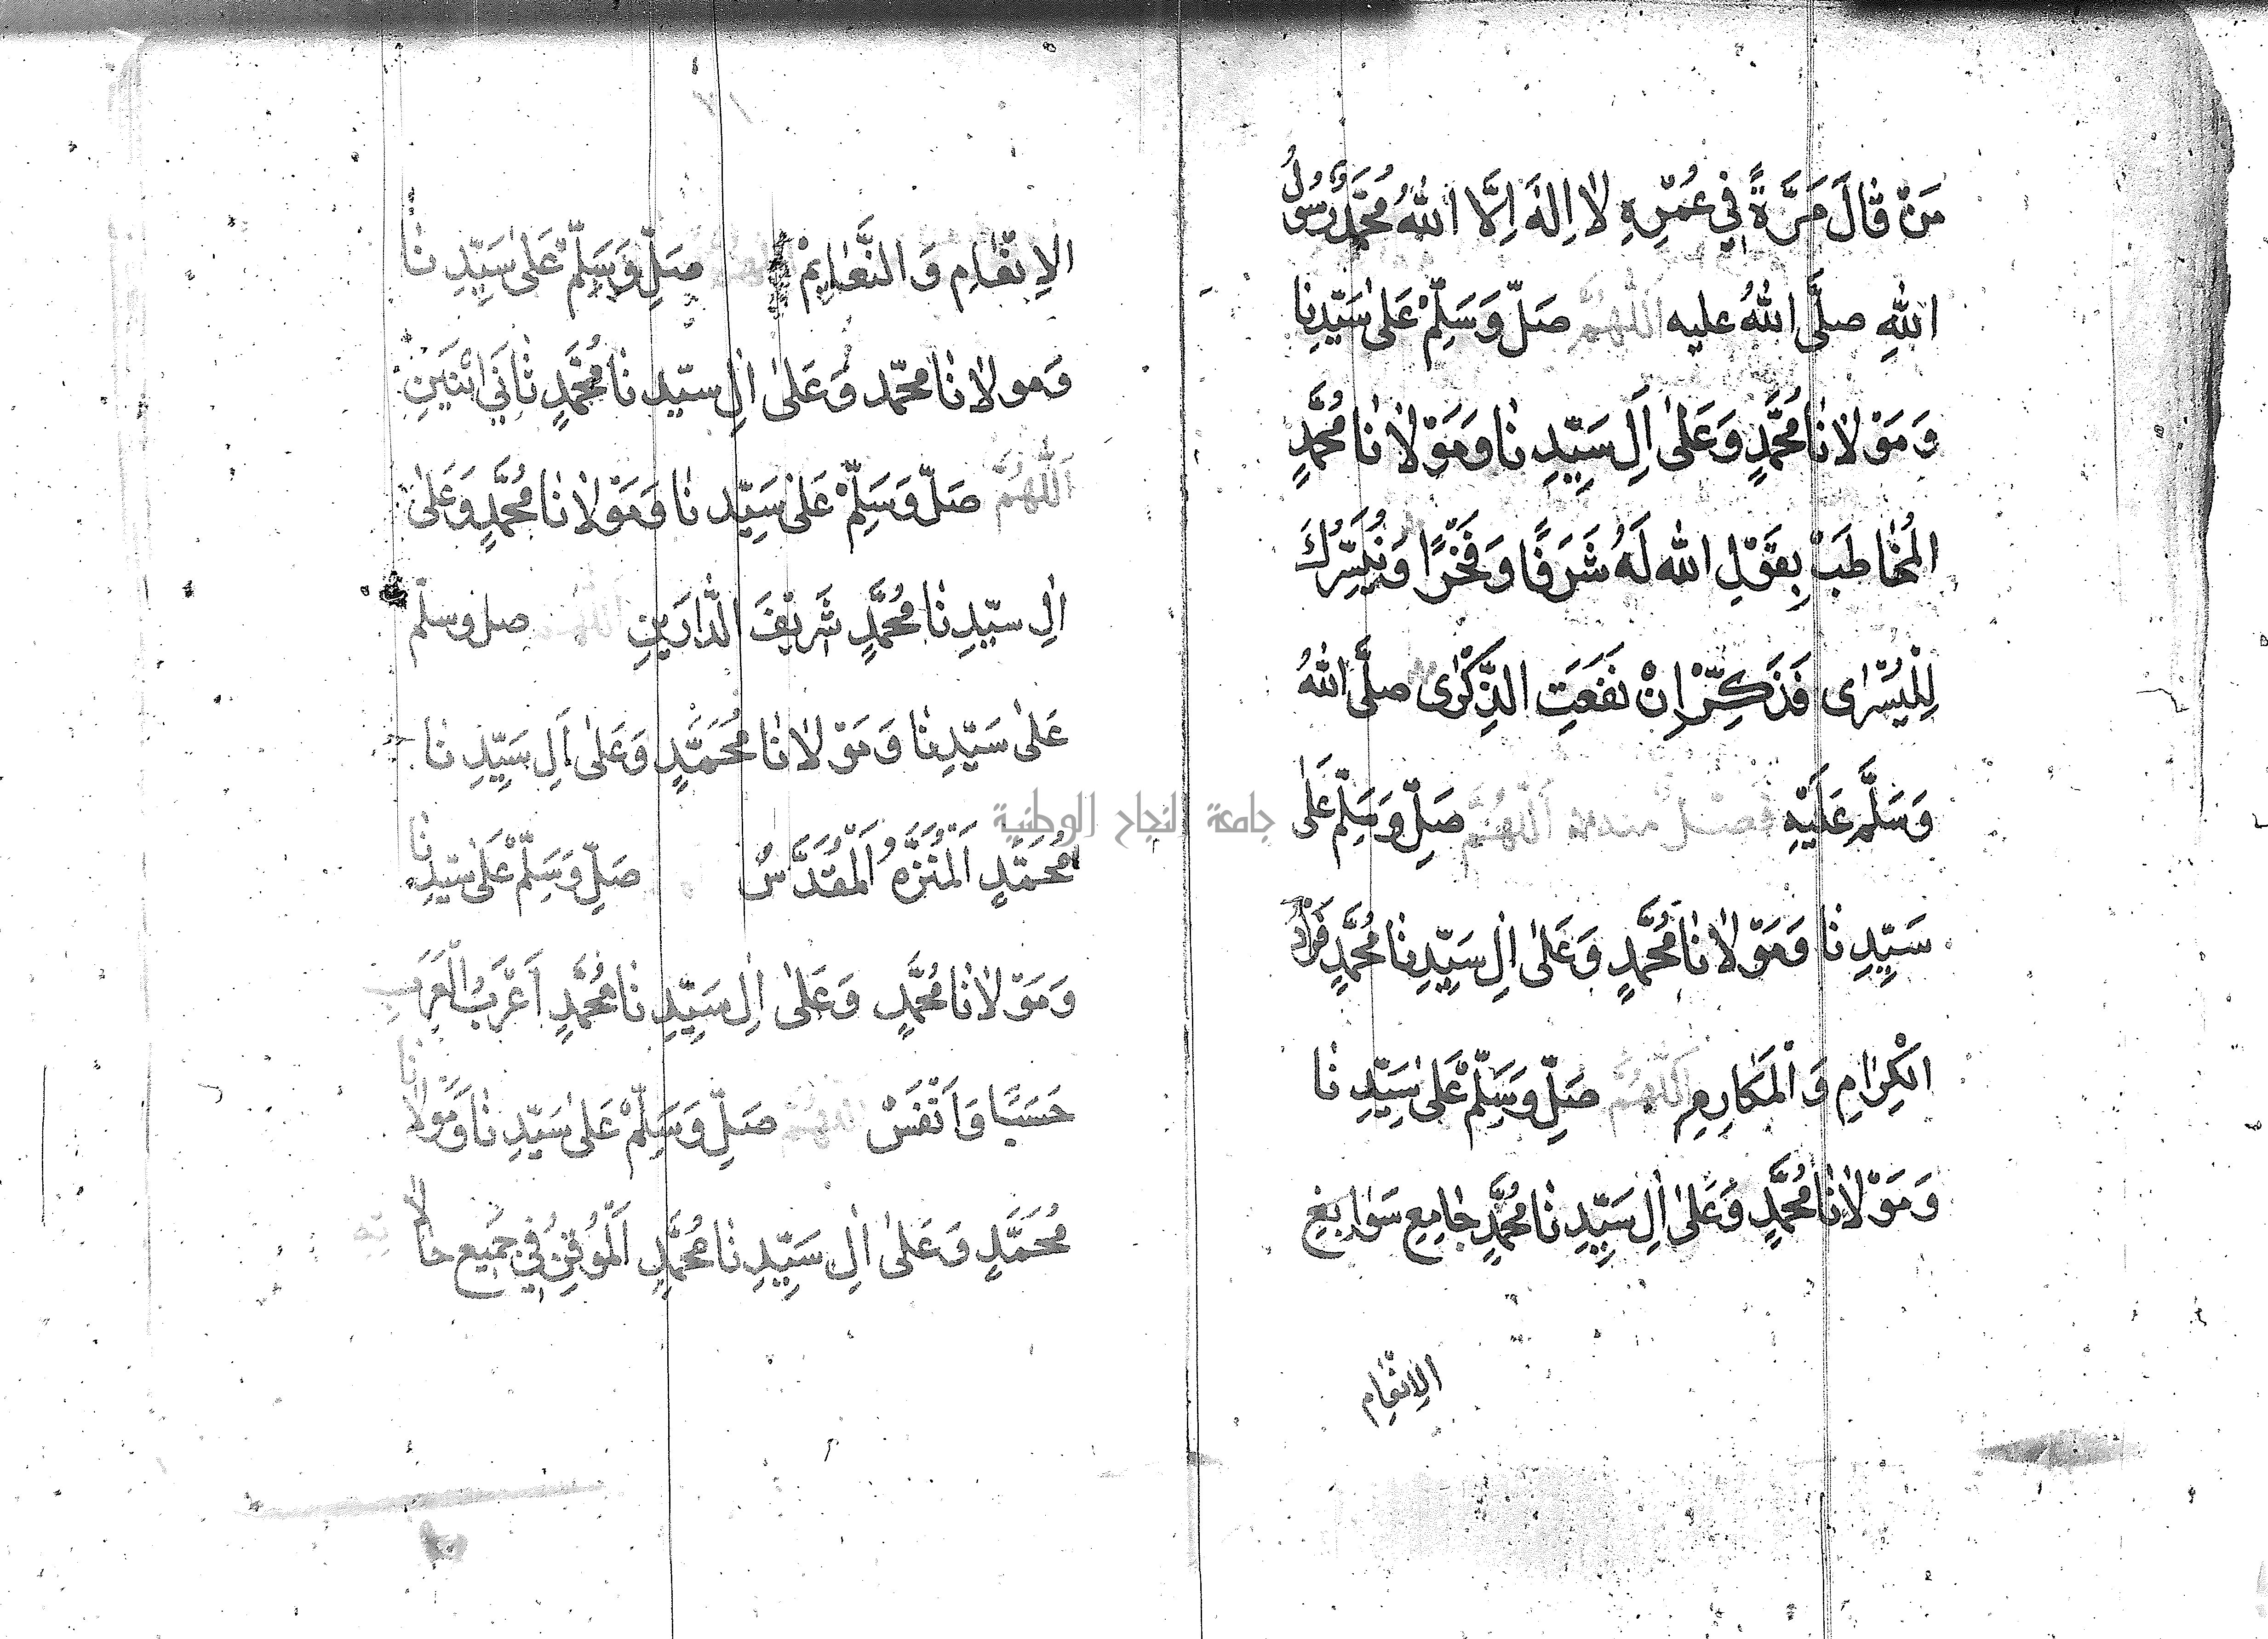 مَنْ قَالَ مَرَّةً فِي عُمْرِهِ لَا اِلٰهَ اِلَّا اللهُ مُحَمَّدٌ رَسُولُ
اللهِ صلَّى اللهُ عليه اَللّٰهُمَّ صَلِّ وَسَلِّمْ عَلٰى سَيِّدِنَا
وَمَوْلَانَا مُحَمَّدٍ وَعَلٰى اٰلِ سَيِّدِنَا وَمَوْلَانَا مُحَمَّدٍ
الْمُخَاطَبْ بِقَوْلِ الله لَهُ شَرَفًا وَفَخْرًا وَنُيَسِّرُكَ
لِلْيُسْرٰى فَذَكِّرْ اِنْ نَفَعَتِ الذِّكْرٰى صلَّى اللهُ
وَسَلَّمَ عَلَيْهِ فَصْلٌ منه اَللّٰهُمَّ صَلِّ وَسَلِّمْ عَلٰى
سَيِّدِنَا وَمَوْلَانَا مُحَمَّدٍ وَعَلٰى اٰلِ سَيِّدِنَا مُحَمَّدٍ
الْكِرَامِ وَالْمَكَارِمِ اَللّٰهُمَّ صَلِّ وَسَلِّمْ عَلٰى سَيِّدِنَا
وَمَوْلَانَا مُحَمَّدٍ وَعَلٰى اٰلِ سَيِّدِنَا مُحَمَّدٍ جَامِعِ سَوَابِغِ
الاِنْعَامِ
الاِنْعَامِ وَالنَّعَايِمْ صَلِّ وَسَلِّمْ عَلٰى سَيِّدِنَا
وَمولَانَا محمّد وَعَلٰى اٰلِ سيّدِنَا مُحَمَّدٍ ثَانَيَ اثْنَيْنِ
اَللّٰهُمَّ صَلِّ وَسَلِّمْ عَلٰى سَيِّدِنَا وَمَوْلَانَا مُحَمَّدٍ وَعَلٰى
اٰلِ سيّدِنَا مُحَمَّدٍ شَرِيْفَ الدَّارَيْنِ صل وسلّم
عَلٰى سَيِّدِنَا وَمَوْلَانَا مُحَمَّدٍ وَعَلٰى اٰلِ سَيِّدِنَا
مُحَمَّدٍ اَلْمُنَزَّهُ اَلْمُقَدَّسْ صَلِّ وَسَلِّمْ عَلٰى سَيِّدِنَا
وَمَوْلَانَا مُحَمَّدٍ وَعَلٰى اٰلِ سَيِّدِنَا مُحَمَّدٍ اَعْرَبُ الْعَرَبِ
حَسَبًا وَاَنْفَسْ صَلِّ وَسَلِّمْ عَلٰى سَيِّدِنَا وَمَوْلَانَا
مُحَمَّدٍ وَعَلٰى اٰلِ سَيِّدِنَا مُحَمَّدٍ اَلْمُوقِنُ فِي جَمِيعِ حَالَا
جامعة النجاح الوطنية